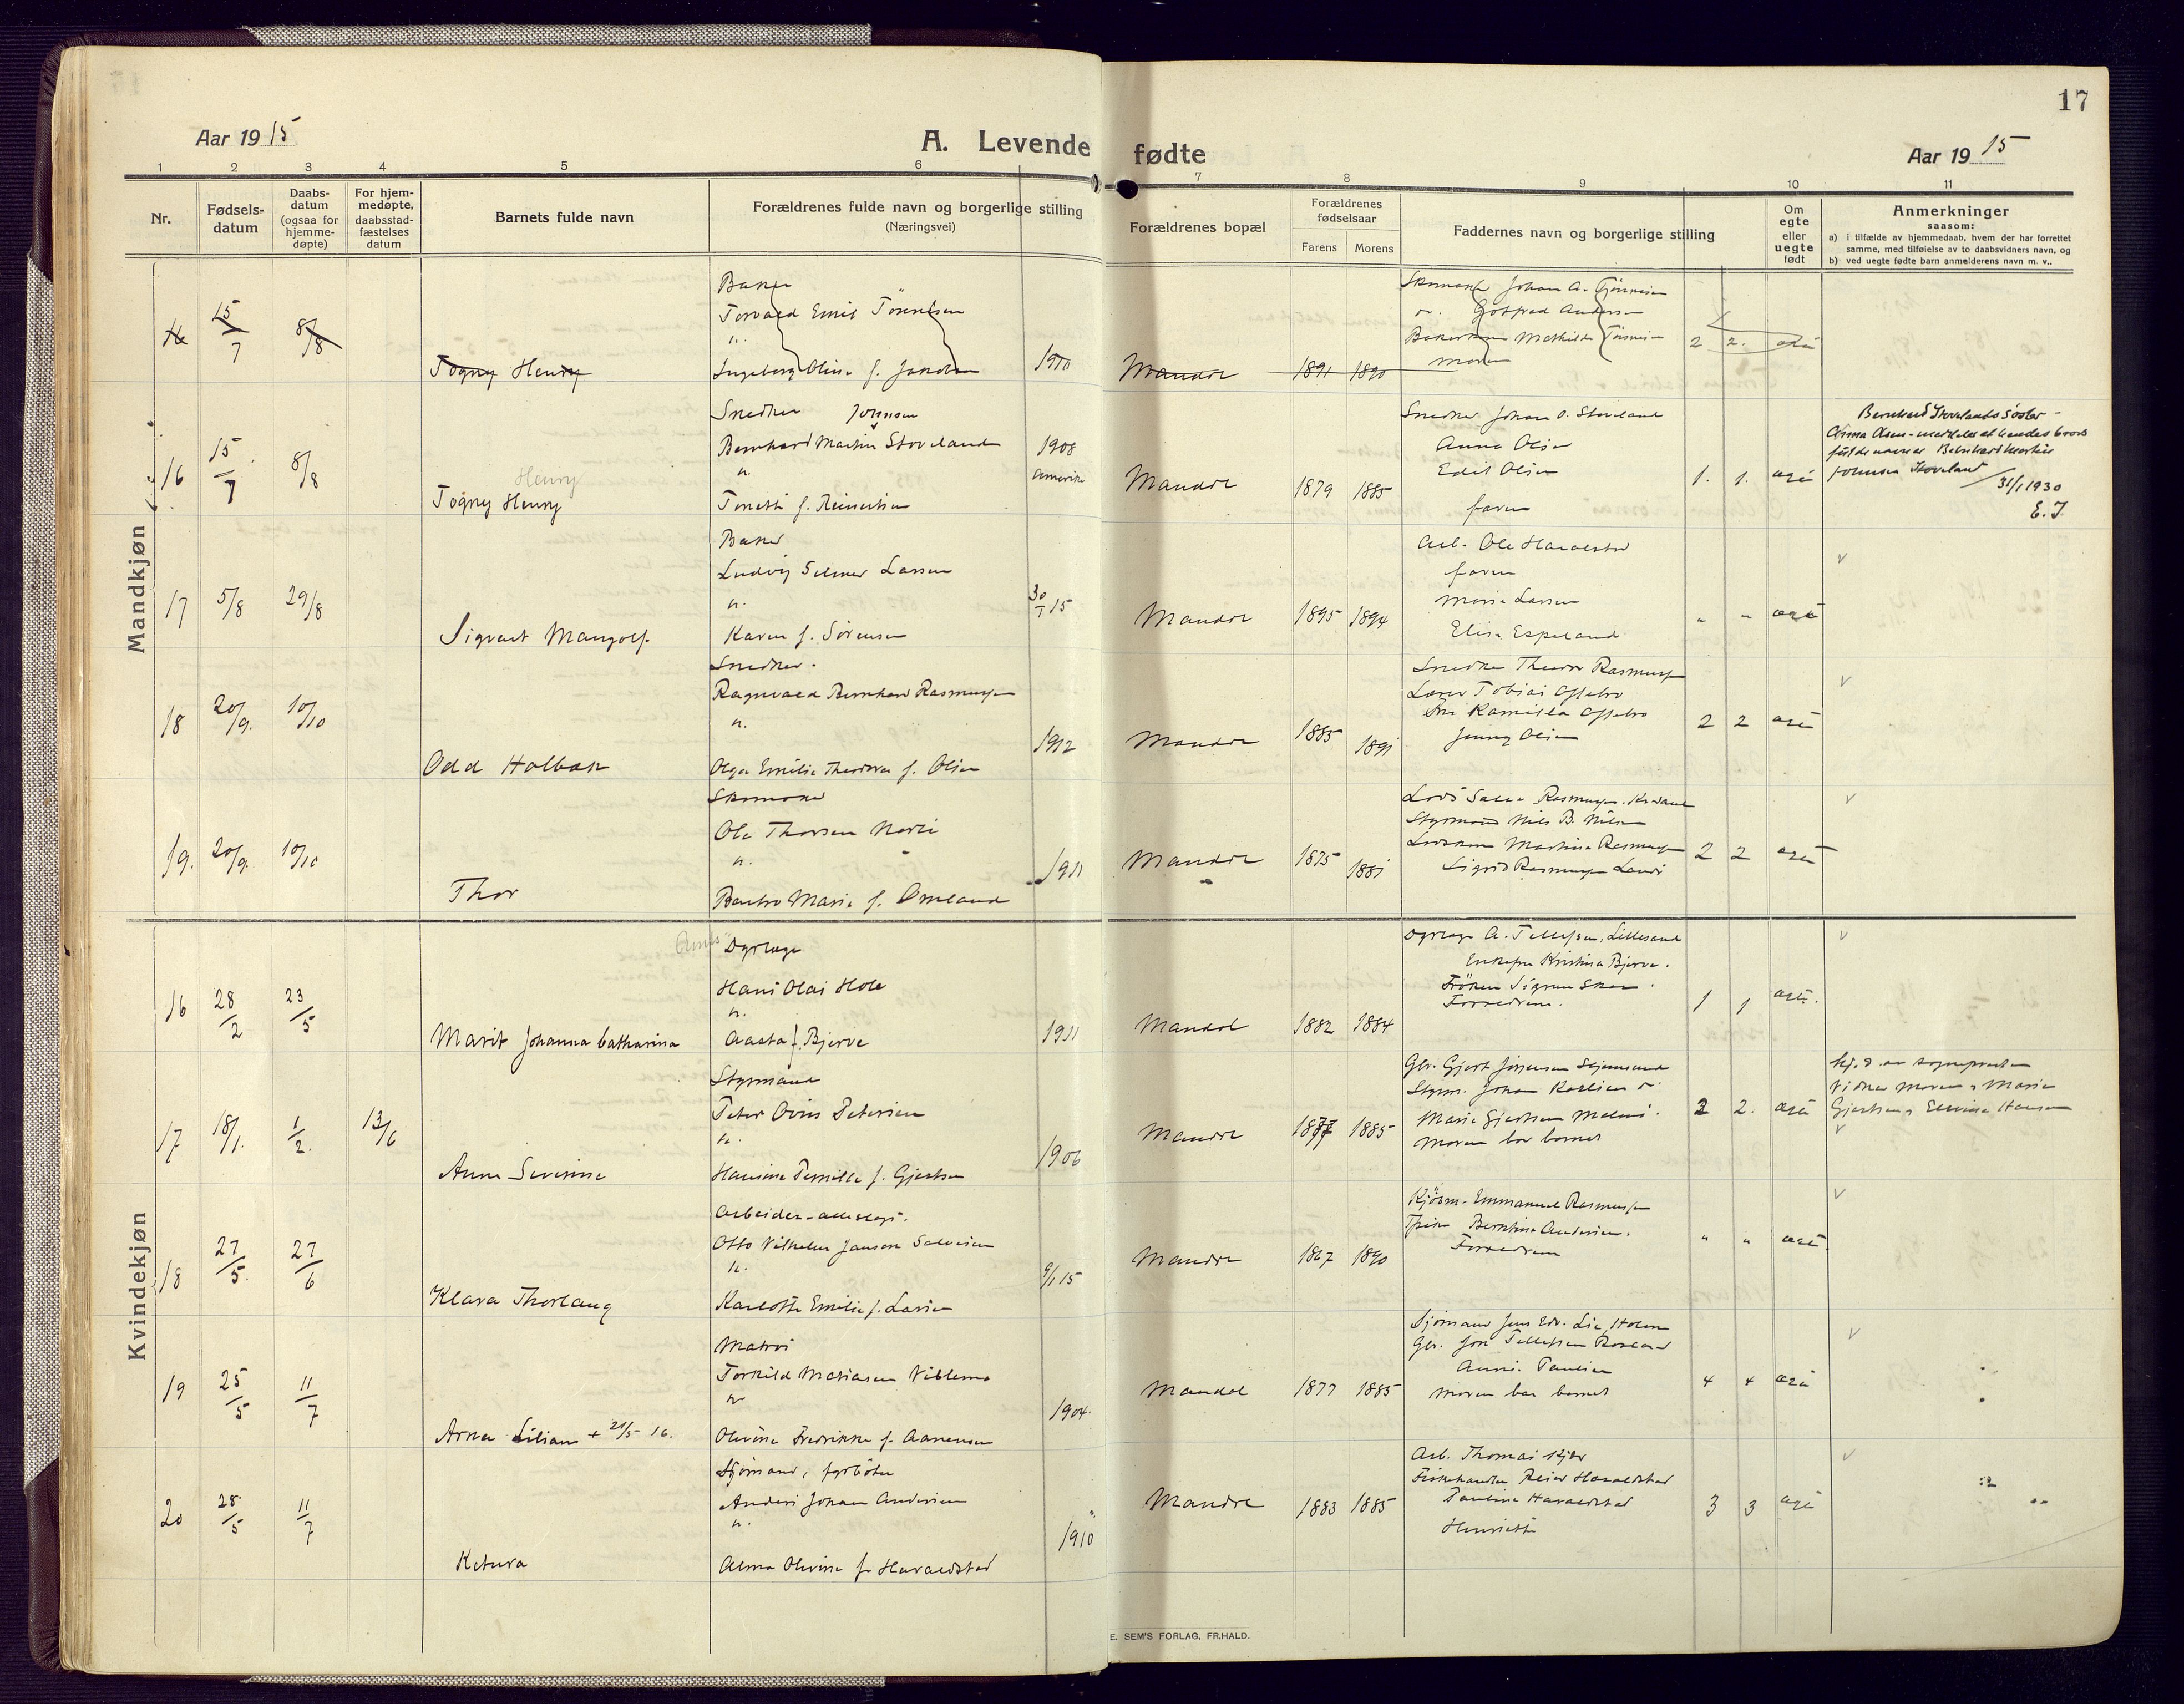 17
Aar 1915
A. Levende fødte
Aar 1915
1 2 3 4 5 6 7 8 9 10 11
Nr.
Fødsels-
datum
Daabs-
datum
(ogsaa for
hjemme-
døpte)
For hjem-
medøpte,
daabsstad-
fæstelses
datum
Barnets fulde navn
Forældrenes fulde navn og borgerlige stilling
(Næringsvei)
Forældrenes bopæl
Forældrenes
fødselsaar
Farens Morens
Faddernes navn og borgerlige stilling
Om
egte
eller
uegte
født
Anmerkninger
saasom:
a) i tilfælde av hjemmedaab, hvem der har forrettet
samme, med tilføielse av to daabsvidners navn, og
b) ved uegte fødte barn anmelderens navn m. v..
Mandkjøn
Baker
16 15/7 8/8 Torvald Emil Tønnesen
Togny Henry Ingeborg Oline f. Jakobsen 1910 Mandal 1891 1890
Skomaker Johan A. Tjønnesen
Gotfred Andersen
Mathilde Tønnesen 2 2.
moren
Snedker Johnsen
16 15/7 8/8 Bernhard Martin Stoveland 1908
Amerika
Henry
Togny Henry Tonette f. Reinertsen Mandal 1879 1885
Snedker Johan O. Stoveland
Anna Olsen
Edit Olsen 1. 1. egte
faren
Bernhard Stovelands søster -
Anna Olsen - meddeler at hendes brors
fulde navn er Bernhard Martin
Johnsen Stoveland
31/1 1930
E. J.
Baker
17 5/8 29/8 Ludvig Selmer Larsen
Sigvart Mangolf. Karen f. Sørensen 30/1 15 Mandal 1895 1894
Arb. Ole Haraldstad
faren
Marie Larsen
Elise Espeland " " egte
Snedker.
18 20/9. 10/10 Ragnvald Bernhard Rasmussen
Odd Holbak Olga Emilie Theodora f. Olsen 1912 Mandal 1885 1891
Snedker Theodor Rasmussen
Tobias Ofsebro
Fru Kamilla Ofsebro 2 2 egte
Jenny Olsen
Skomaker
19. 20/9. 10/10 Ole Thorsen
Thor Marie f. Omland 1911 Mandal 1875 1881
Lods Rasmussen
Styrmand Nils B. Nilsen
Martine Rasmussen 2 2 egte
Sigrid Rasmussen
Kvindekjøn
Dyrlæge
16 28/2 23/5 Hans Olai Hole
Marit Johanna Catharina Aasta f. Bjerve 1911 Mandal 1882 1884
Dyrlæge A. Tellefsen, Lillesand
Enkefru Kristina Bjerve.
Frøken Sigrun
Forældrene. 1 1 egte.
Styrmand
17 18/1. 1/2. 13/6 Peter Petersen
Anne Severine Hansine Pernille f. Gjertsen 1906 Mandal 1877 1885
Gbr. Gjert Jørgensen
Styrm. Johan
Marie Gjertsen 2 2. egte
moren bar barnet
hj.d. av sognepresten
Vidner moren & Marie
Gjertsen & Hansen
Arbeider
18 27/5. 27/6 Otto Vilhelm Jansen Salvesen
Klara Thorlaug Karlotte Emilie f. Larsen 9/1 15 Mandal 1867 1890
Kjøbm. Emmanuel Rasmussen
Bernhine Andersen.
Forældrene " " egte
Matros
19 25/5 11/7 Torkild Matiasen
Arna Lilian + 21/5 16. Olivine Fredrikke f. Aanensen 1904. Mandal 1877 1885
Sjømand Jens Edv. Lie, Holum
Gbr. Tellefsen
Paulsen 4 4 egte
moren bar barnet
Sjømand, fyrbøter
20 28/5 11/7 Anders Johan Andersen
Ketura Alma Olivine f. Haraldstad 1910 Mandal 1883 1885
Arb. Thomas Kjær
Fiskehandler Reier Haraldstad
Pauline Haraldstad 3 3 egte
Henriette
E. SEM'S FORLAG, FR.HALD.